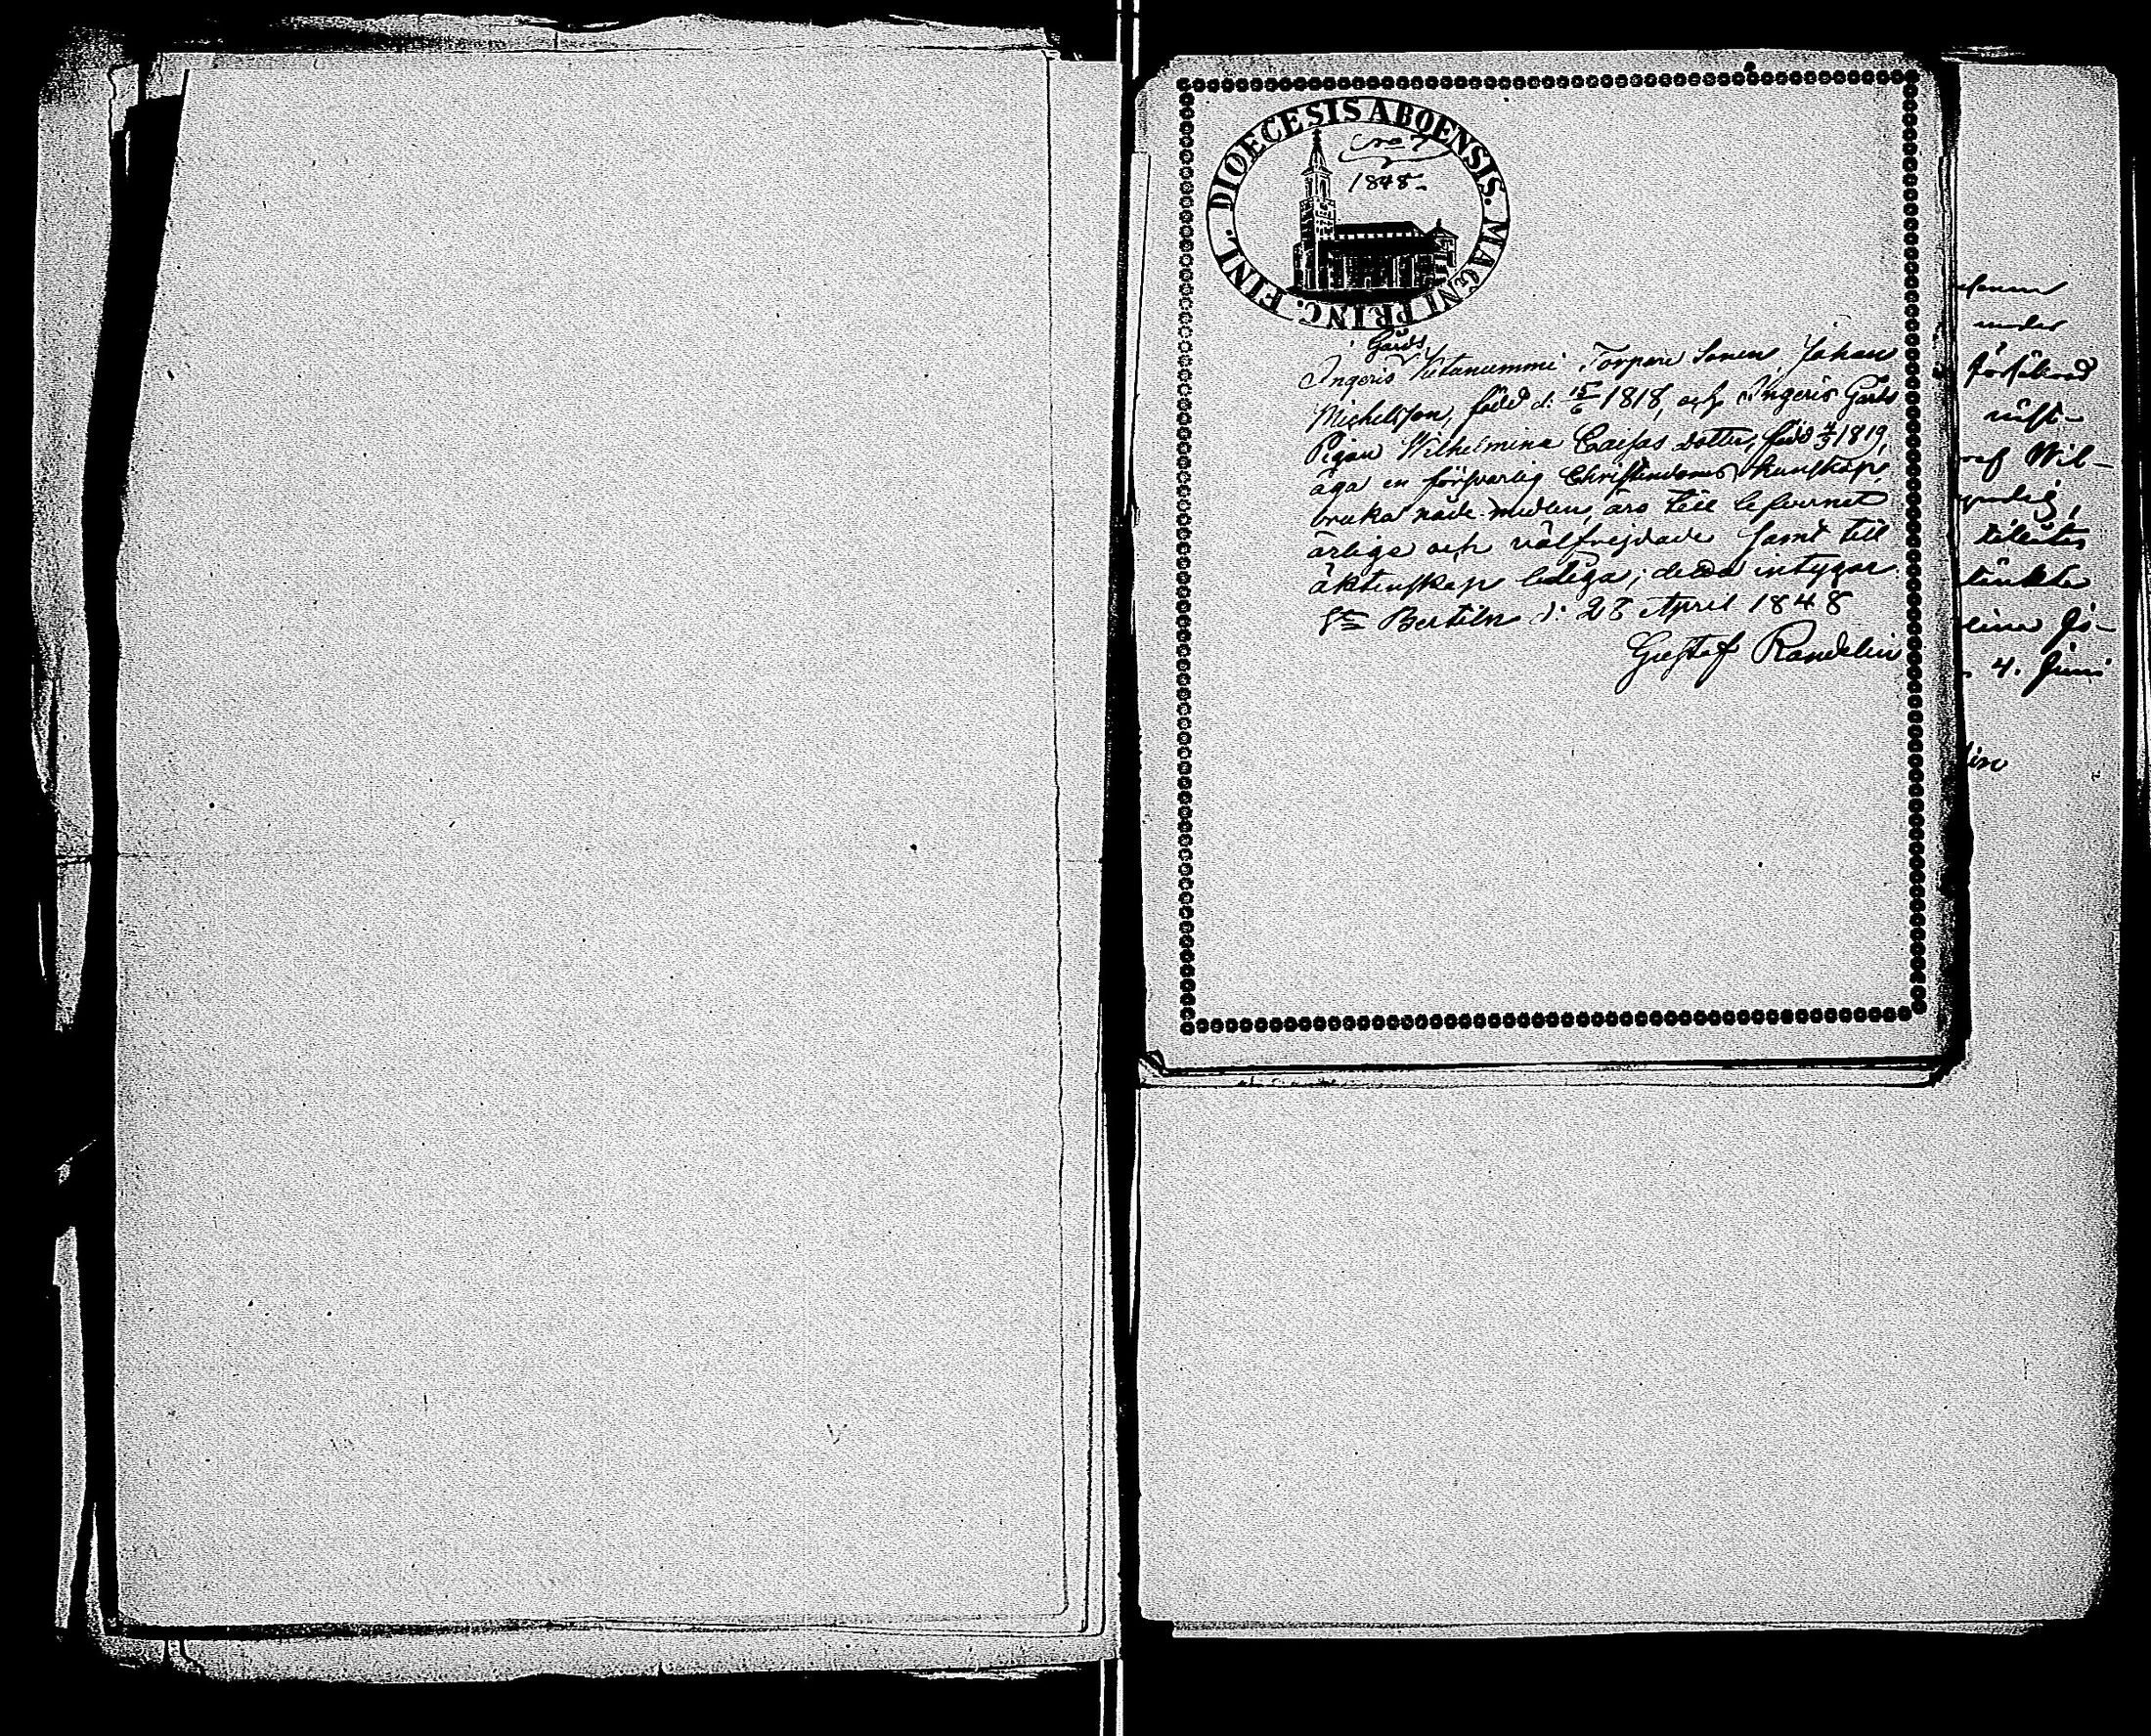 DIOECESIS ABOENSIS. MAGNI PRINC. FINL.
No 7
1848.
Gårds
Ingeris Torpare Sonen Johan
Michelsson, född d. 15/6 1818, och Ingeris Gårds
Pigan Wilhelmina Caisas dotter, född 4/5 1819,
äga en försvarlig Christendoms kunskap,
bruka nåde medlen, äro till lefvernet
ärlige och välfrejdade samt till
äktenskap lediga; detta intygar.
Bertils d. 28 April 1848
Gustaf Randelin
under
Wil-
4. Juni